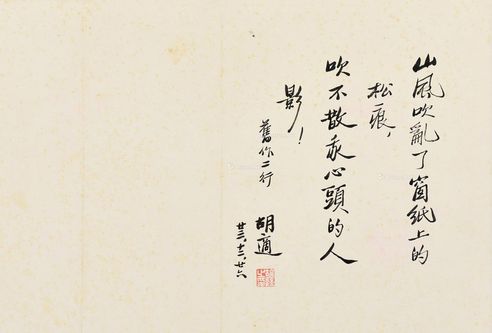 山風吹亂了窗紙上的
松痕，
吹不散我心頭的人
影！
舊作二行
胡適
廿三、十二、廿六